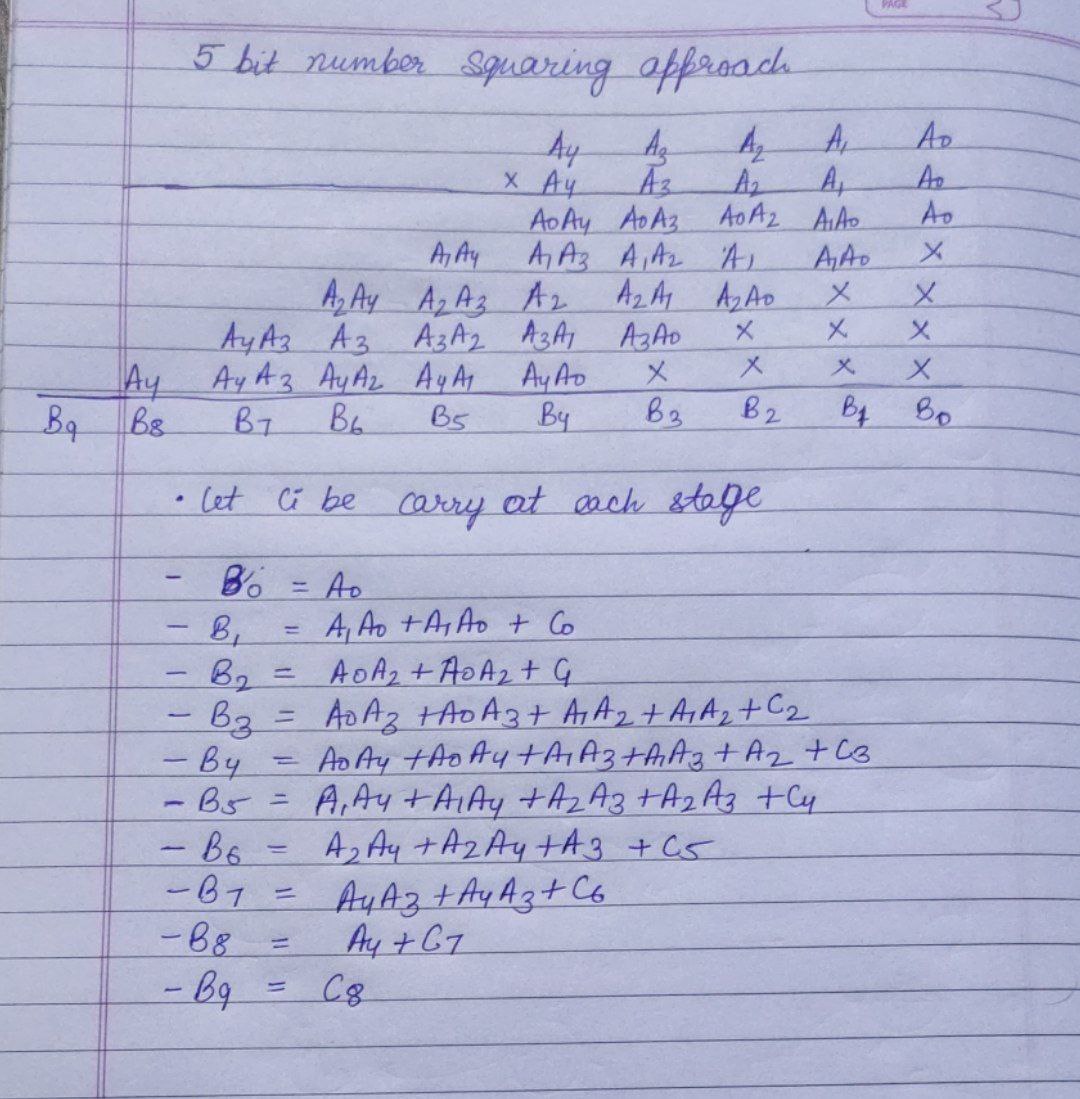 PAGE
5 bit number squaring approach
A4 A3 A2 A1 A0
x A4 A3 A2 A1 A0
A0A4 A0A3 A0A2 A1A0 A0
A1A4 A1A3 A1A2 A1 A1A0 x
A2A4 A2A3 A2 A2A1 A2A0 x x
A4A3 A3 A3A2 A3A1 A3A0 x x x
A4 A4A3 A4A2 A4A1 A4A0 x x x x
B9 B8 B7 B6 B5 B4 B3 B2 B1 B0
• let Ci be carry at each stage
- B0 = A0
- B1 = A1A0 + A1A0 + C0
- B2 = A0A2 + A0A2 + C1
- B3 = A0A3 + A0A3 + A1A2 + A1A2 + C2
- B4 = A0A4 + A0A4 + A1A3 + A1A3 + A2 + C3
- B5 = A1A4 + A1A4 + A2A3 + A2A3 + C4
- B6 = A2A4 + A2A4 + A3 + C5
- B7 = A4A3 + A4A3 + C6
- B8 = A4 + C7
- B9 = C8